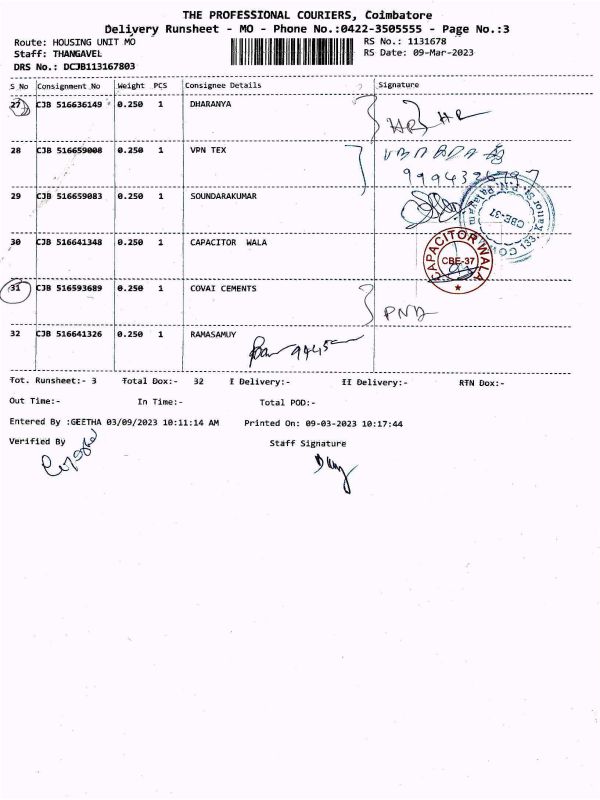 THE PROFESSIONAL COURIERS, Coimbatore
Delivery Runsheet - MO - Phone No.:0422-3505555 - Page No.:3
Route: HOUSING UNIT MO RS No.: 1131678
Staff: THANGAVEL RS Date: 09-Mar-2023
DRS No.: DCJB113167803
S No Consignment No Weight PCS Consignee Details Signature
27 CJB 516636149 0.250 1 DHARANYA
28 CJB 516659008 0.250 1 VPN TEX
29 CJB 516659083 0.250 1 SOUNDARAKUMAR
CBE-37
30 CJB 516641348 0.250 1 CAPACITOR WALA
CAPACITOR WALA
CBE-37
31 CJB 516593689 0.250 1 COVAI CEMENTS
32 CJB 516641326 0.250 1 RAMASAMUY
Tot. Runsheet:- 3 Total Dox:- 32 I Delivery:- II Delivery:- RTN Dox:-
Out Time:- In Time:- Total POD:-
Entered By :GEETHA 03/09/2023 10:11:14 AM Printed On: 09-03-2023 10:17:44
Verified By Staff Signature